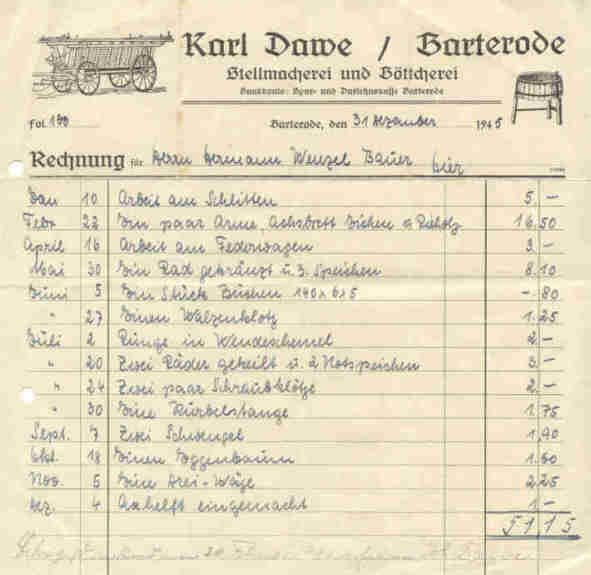 Karl Dawe / Barterode
Stellmacherei und Böttcherei
Bankkonto: Spar- und Darlehnskasse Barterode
Fol. 190
Barterode, den 31 Dezember 1945
Rechnung für Herrn Hermann Wenzel Bauer hier
Jan 10 Arbeit am Schlitten 5. –
Febr 22 Ein paar Arme, Achsbrett Eichen 16,50
April 16 Arbeit am Federwagen 3. –
Mai 30 Ein Rad gekränzt u. 3. Speichen 8.10
Juni 5 Ein Stück Buchen 140 x 6 x 5 –. 80
" 27 Einen Walzenklotz 1.25
Juli 2 Runge in Wendeschemel 2. –
" 20 Zwei Räder gekeilt u. 2 Notspeichen 3. –
" 24 Zwei paar Schraubklötze 2. –
" 30 Eine Kurbelstange 1.75
Sept. 7 Zwei Schwengel 1,90
Okt. 18 Einen Eggenbaum 1.60
Nov. 5 Eine Drei-Wage 2.25
Dez. 4 Axhelft eingemacht 1. –
51 15